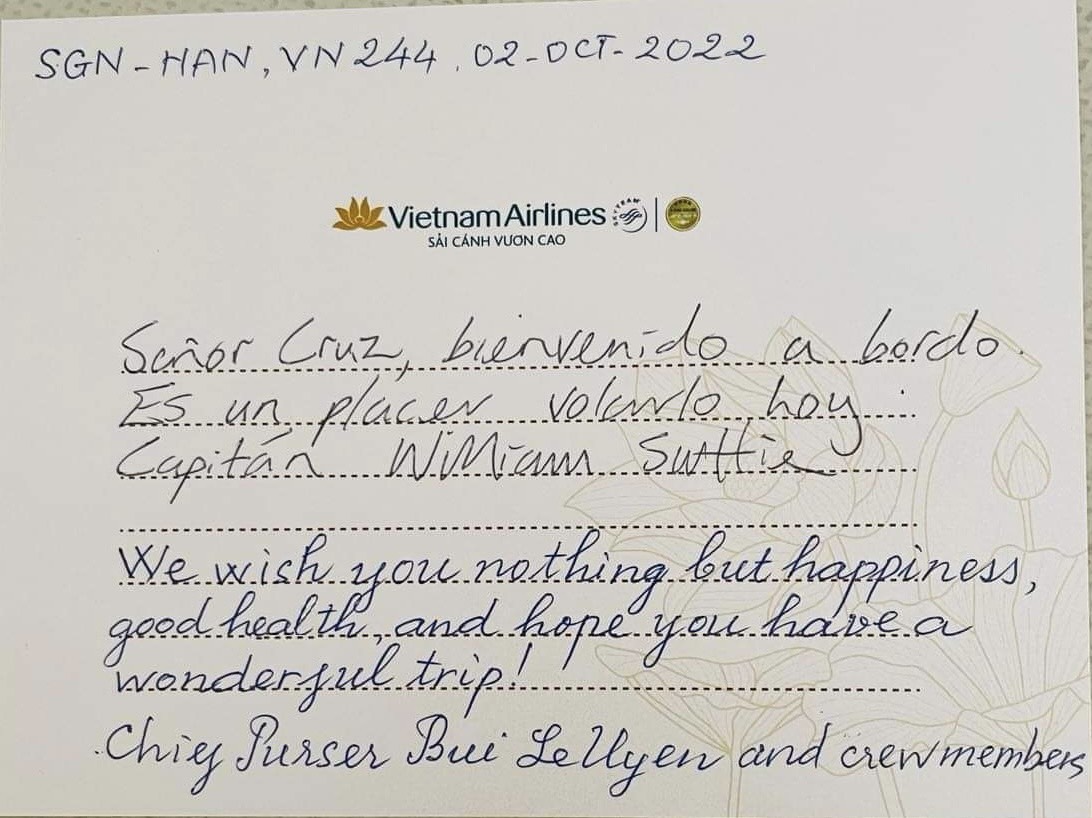 SGN - HAN, VN 244, 02-OCT-2022
Vietnam Airlines SKYTEAM
SẢI CÁNH VƯƠN CAO
Señor Cruz, bienvenido a bordo.
Es un placer volarlo hoy
Capitán William Suttie
We wish you nothing but happiness,
good health, and hope you have a
wonderful trip!
Chief Purser Bui Le Uyen and crewmembers